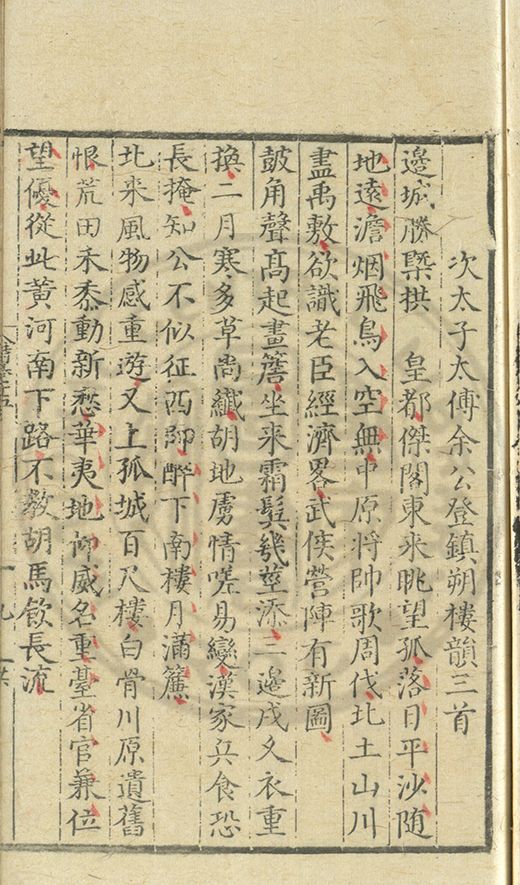 次太子太傅余公登鎮朔樓韻三首
邊城勝槩拱　皇都傑閣東来眺望孤落日平沙随
地遠澹烟飛鳥入空無中原將帥歌周伐北土山川
盡禹敷欲識老臣經濟畧武侯營陣有新圖
鼓角聲高起畫簷坐来霜鬂幾莖添三邊戍久衣重
換二月寒多草尚纖胡地虜情嗟易變漢家兵食恐
長掩知公不似征西帥醉下南樓月滿簾
北来風物感重遊又上孤城百尺樓白骨川原遺舊
恨荒田禾黍動新愁華夷地仰威名重臺省官兼位
望優從此黄河南下路不教胡馬飲長流